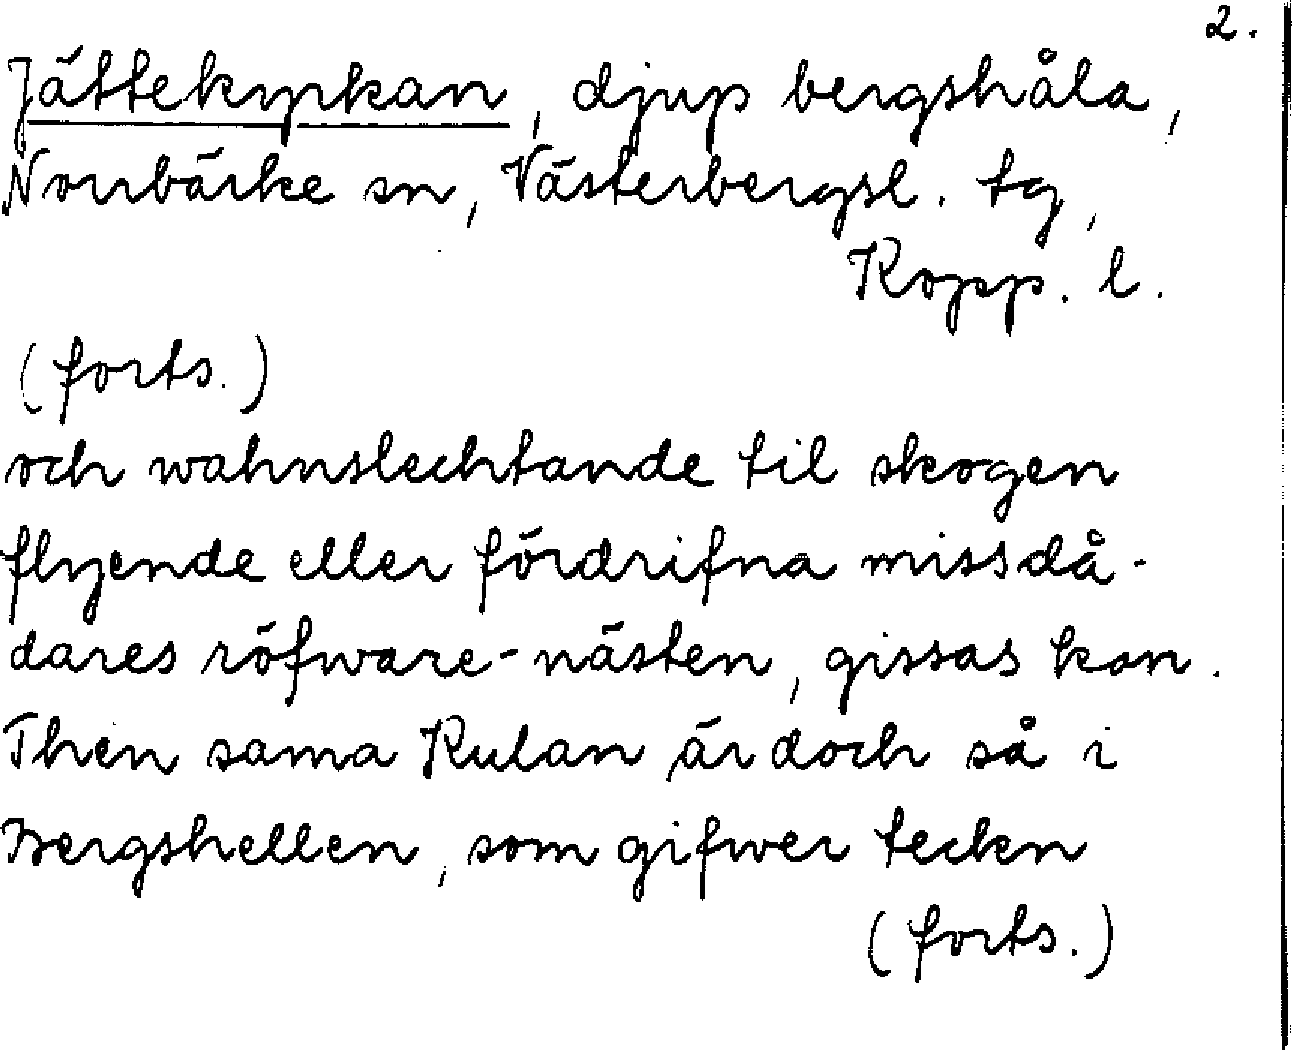 2.
Jättekyrkan, djup bergshåla,
Norrbärke sn, Västerbergsl. tg,
Kopp. l.
(forts.)
och wahnslechtande til skogen
flyende eller fördrifna missdå-
dares röfware-nästen, gissas kan.
Then sama Kulan är doch så i
Bergshellen, som gifwer tecken
(forts.)